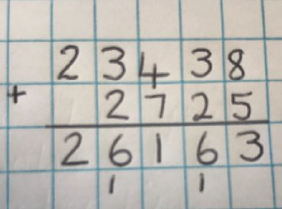 23438
+ 2725
26163
1 1